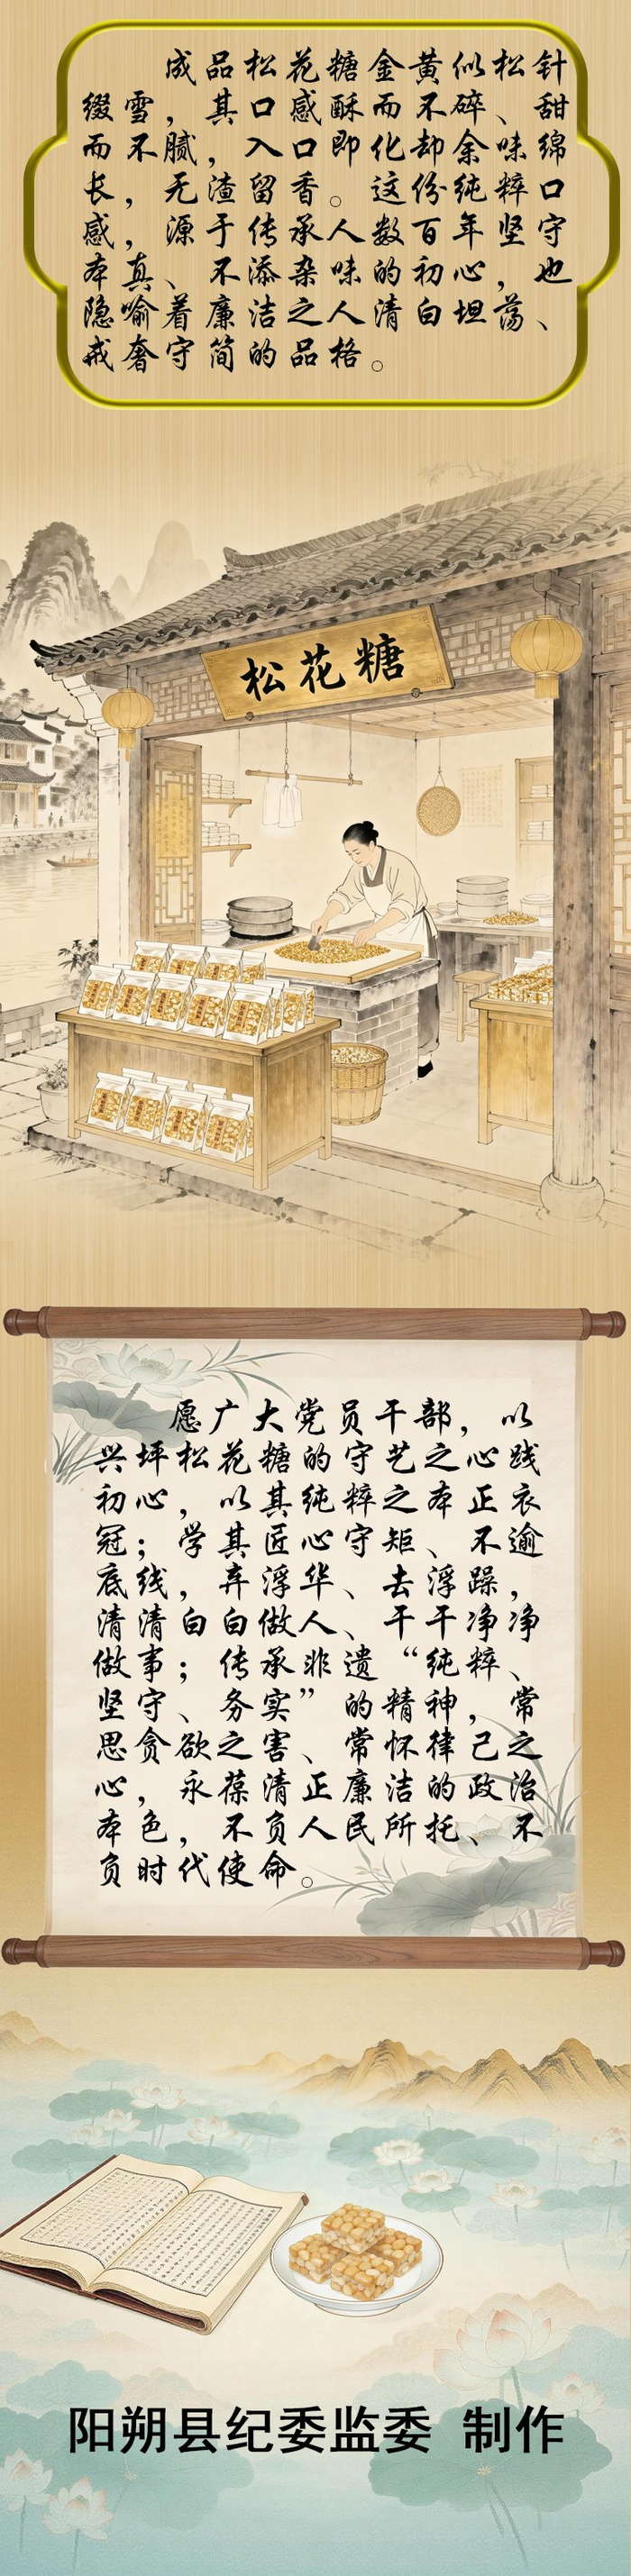 成品松花糖金黄似松针
缀雪，其口感酥而不碎、甜
而不腻，入口即化却余味绵
长，无渣留香。这份纯粹口
感，源于传承人数百年坚守
本真、不添杂味的初心，也
隐喻着廉洁之人清白坦荡、
戒奢守简的品格。
松花糖
愿广大党员干部，以
兴坪松花糖的守艺之心践
初心，以其纯粹之本正衣
冠；学其匠心守矩、不逾
底线，弃浮华、去浮躁，
清清白白做人、干干净净
做事；传承非遗“纯粹、
坚守、务实”的精神，常
思贪欲之害、常怀律己之
心，永葆清正廉洁的政治
本色，不负人民所托、不
负时代使命。
阳朔县纪委监委 制作